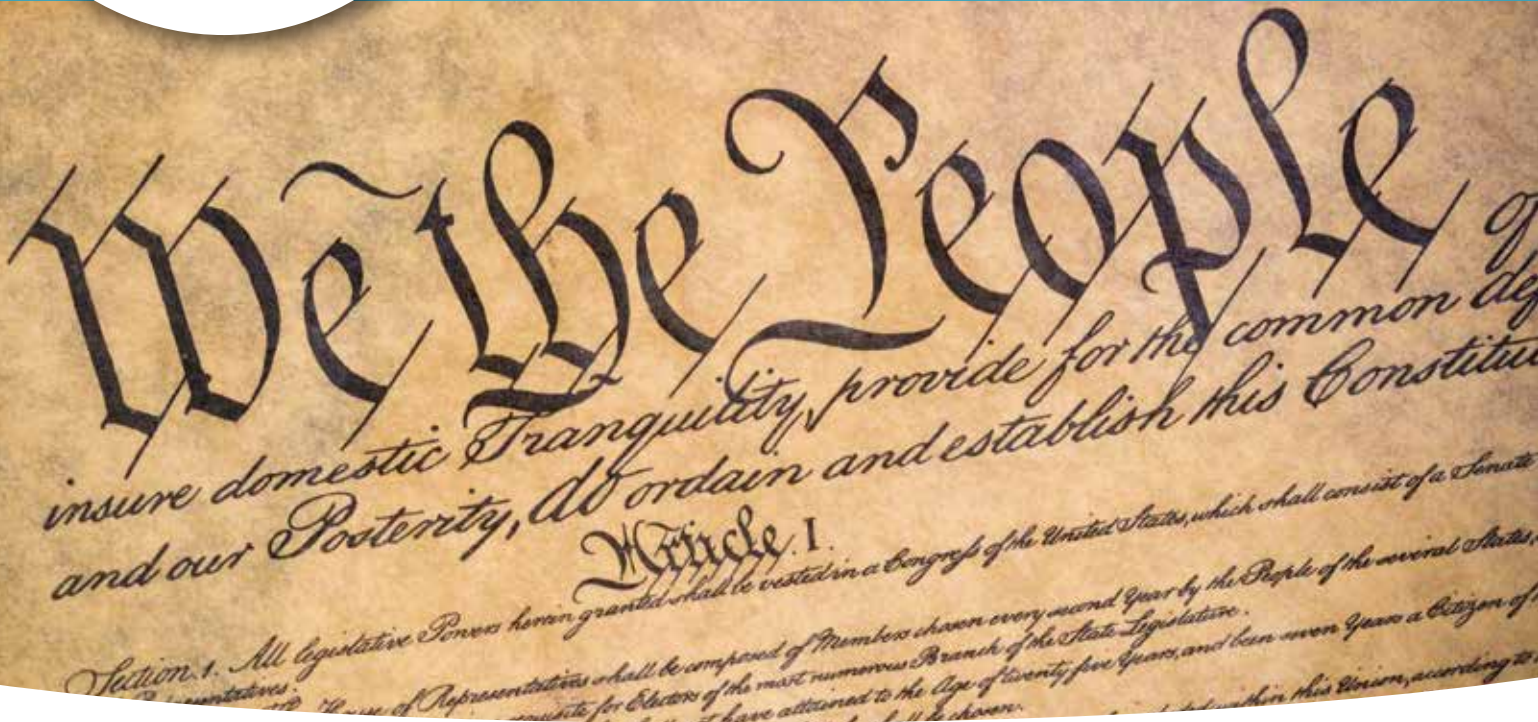 We the People of
insure domestic Tranquility, provide for the common def
and our Posterity, do ordain and establish this Constitu
Article. I.
Section. 1. All legislative Powers herein granted shall be vested in a Congress of the United States, which shall consist of a Senate
Representatives.
House of Representatives shall be composed of Members chosen every second Year by the People of the several States,
for Electors of the most numerous Branch of the State Legislature.
have attained to the Age of twenty five Years, and been seven Years a Citizen of
shall be chosen.
within this Union, according to